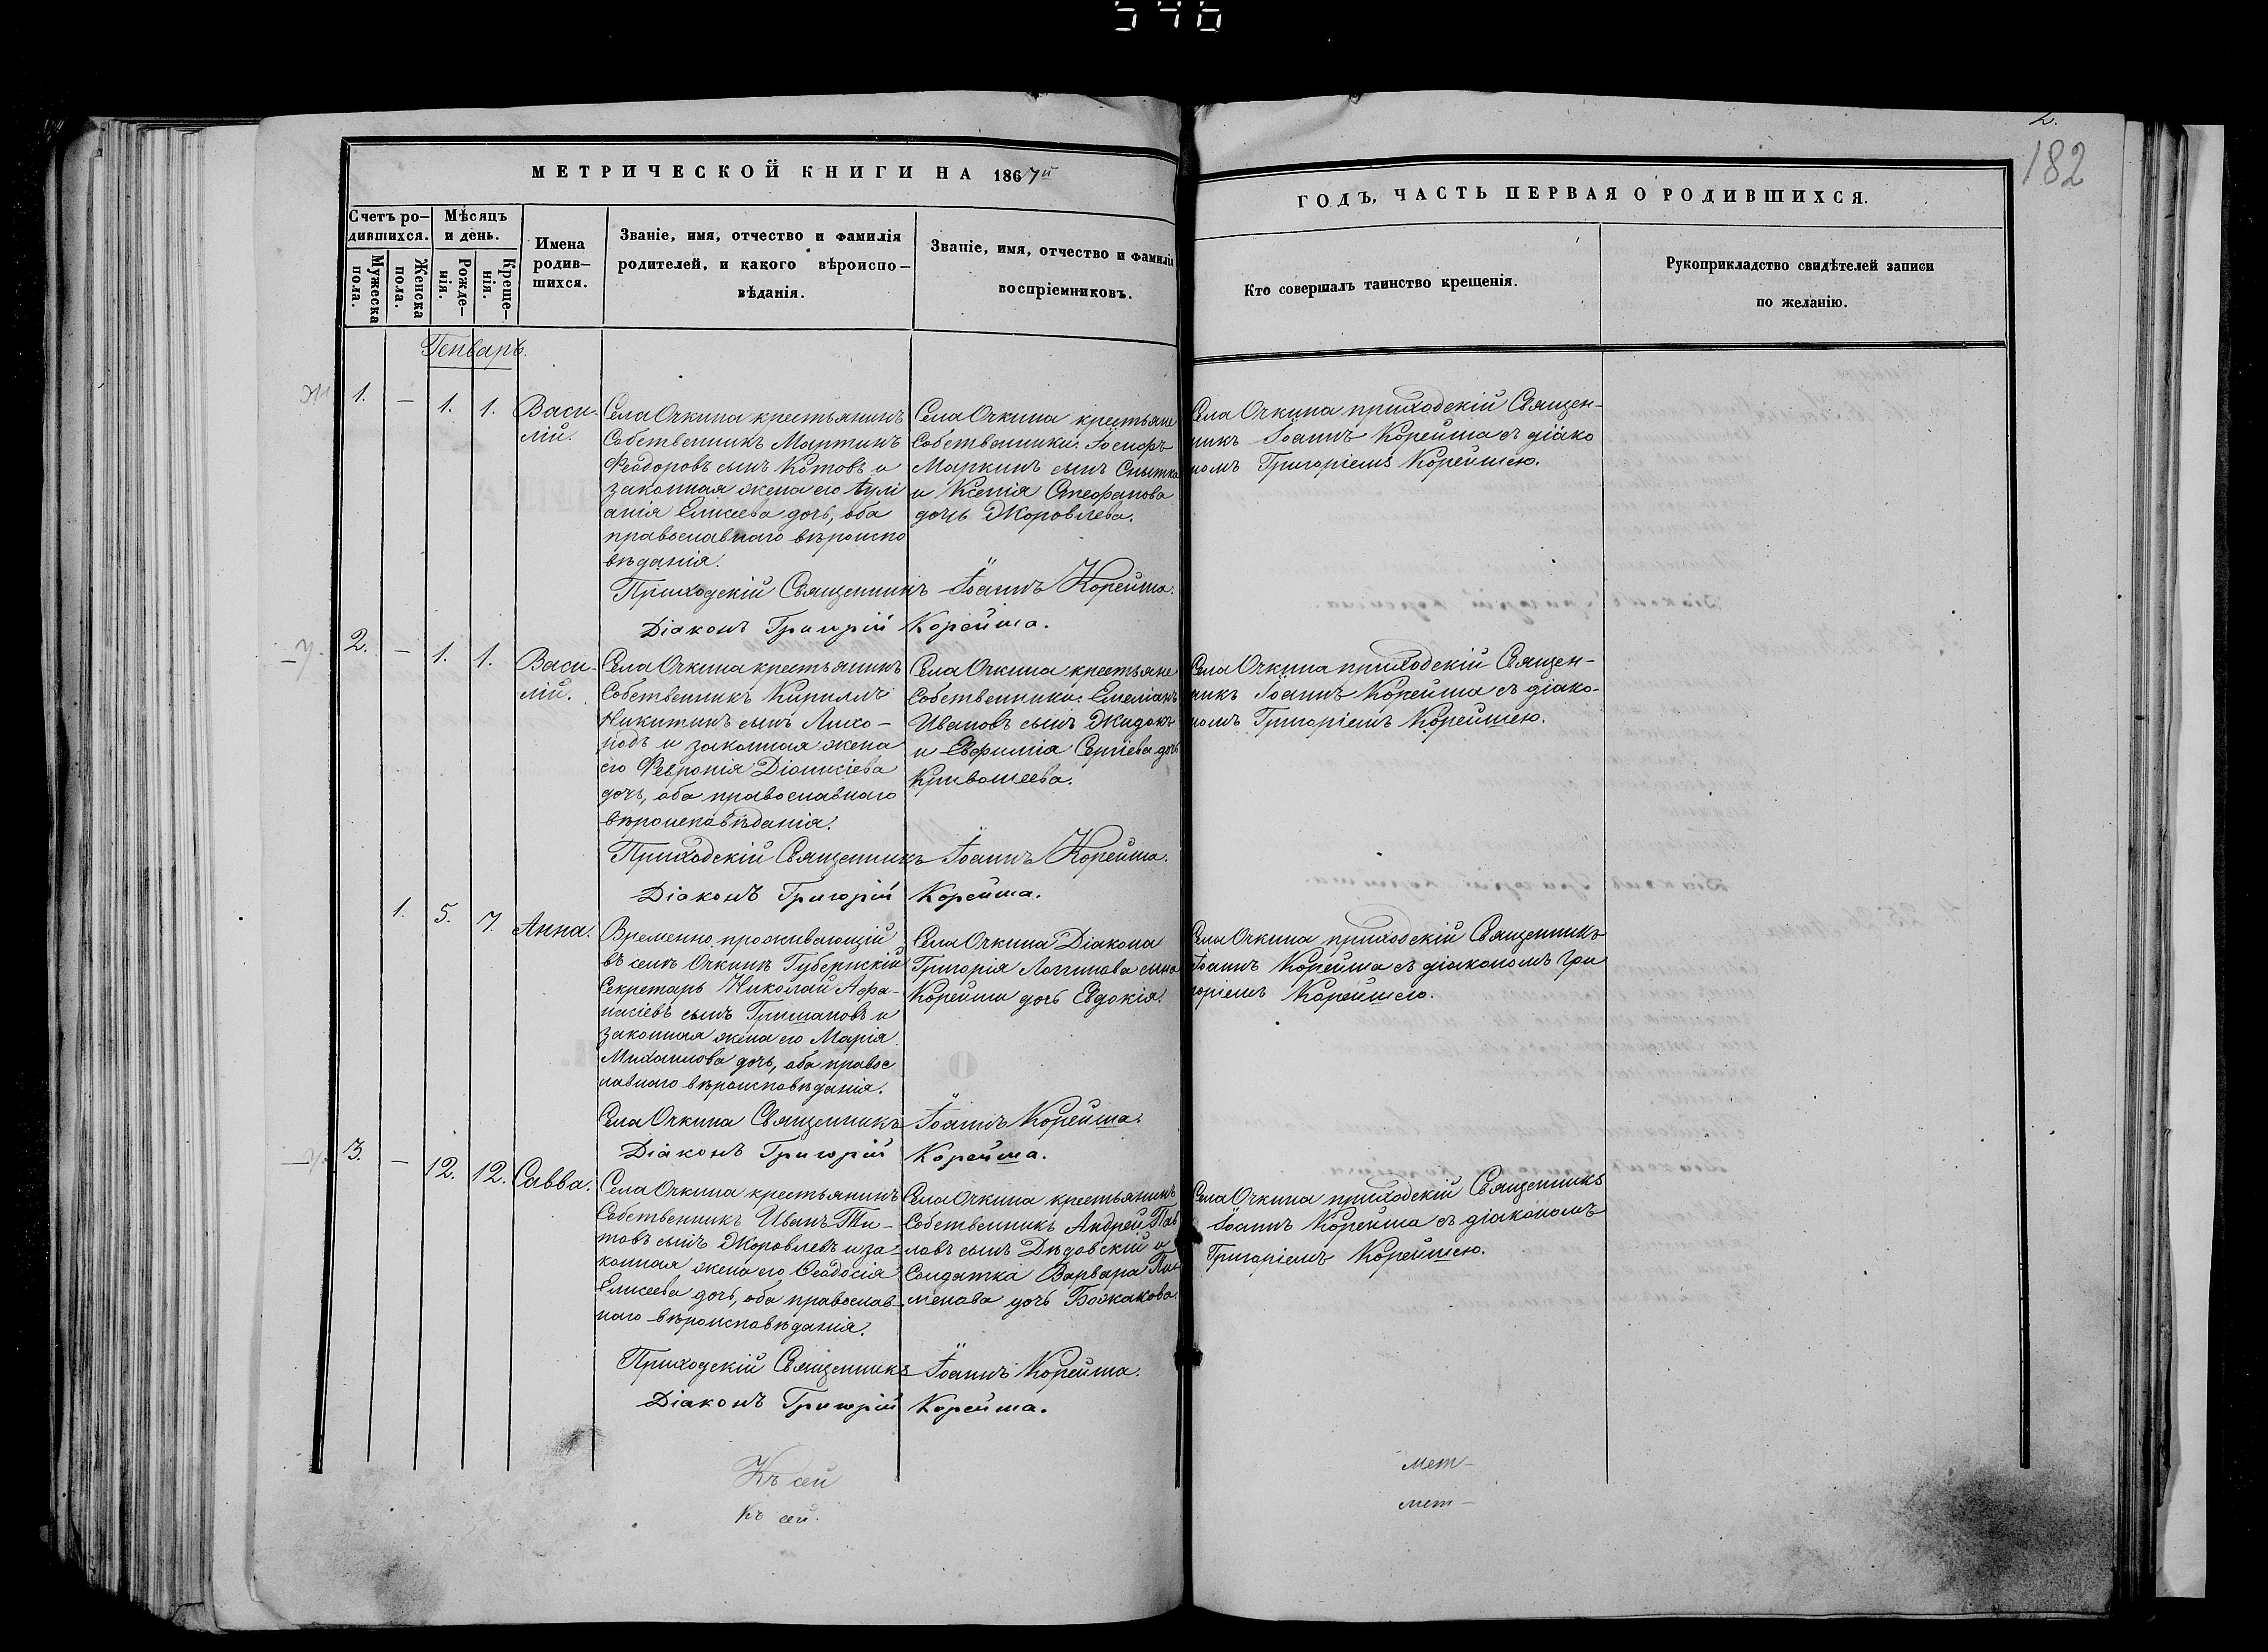 546
2.
182
МЕТРИЧЕСКОЙ КНИГИ НА 1867й
ГОДЪ, ЧАСТЬ ПЕРВАЯ О РОДИВШИХСЯ.
Счетъ ро-
дившихся.
Мужеска
пола.
Женска
пола.
Мѣсяцъ
и день.
Рожде-
нія.
Креще-
нія.
Имена
родив-
шихся.
Званіе, имя, отчество и фамилія
родителей, и какого вѣроиспо-
вѣданія.
Званіе, имя, отчество и фамилія
воспріемниковъ.
Кто совершалъ таинство крещенія.
Рукоприкладство свидѣтелей записи
по желанію.
Генварь.
1. — 1. 1.
Васи-
лій.
Села Очкина крестьянинъ
Собственникъ Мартинъ
Феодоровъ сынъ Котовъ и
законная жена его Іулі
анія Елисеева дочь, оба
православнаго вѣроиспо
вѣданія.
Села Очкина крестьяне
Собственники: Іосифъ
Маркинъ сынъ Снытка
и Ксенія Стефанова
дочь Жоровлева.
Села Очкина приходскій Священ-
никъ Іоаннъ Корейша съ діако
номъ Григоріемъ Корейшею.
Приходскій Священникъ Іоаннъ Корейша.
Діаконъ Григорій Корейша.
2. — 1. 1.
Васи-
лій.
Села Очкина крестьянинъ
Собственникъ Кириллъ
Никитинъ сынъ Лихо-
подъ и законная жена
его Февронія Діонисіева
дочь, оба православнаго
вѣроисповѣданія.
Села Очкина крестьяне
Собственники: Емеліанъ
Ивановъ сынъ Жидокъ
и Евфимія Сергіева дочь
Кривошеева.
Села Очкина приходскій Священ-
никъ Іоаннъ Корейша съ діако-
номъ Григоріемъ Корейшею.
Приходскій Священникъ Іоаннъ Корейша.
Діаконъ Григорій Корейша.
1. 5. 7. Анна.
Временно проживающій
въ селѣ Очкинѣ Губернскій
Секретарь Николай Афа-
насіевъ сынъ Гришановъ и
законная жена его Марія
Михаилова дочь, оба правос
лавнаго вѣроисповѣданія.
Села Очкина Діакона
Григорія Логгинова сына
Корейши дочь Евдокія.
Села Очкина приходскій Священникъ
Іоаннъ Корейша съ діакономъ Гри
горіемъ Корейшею.
Села Очкина Священникъ Іоаннъ Корейша.
Діаконъ Григорій Корейша.
3. — 12. 12. Савва.
Села Очкина крестьянинъ
Собственникъ Иванъ Ти-
товъ сынъ Жоровлевъ и за-
конная жена его Феодосія
Елисеева дочь, оба православ-
наго вѣроисповѣданія.
Села Очкина крестьянинъ
Собственникъ Андрей Пав
ловъ сынъ Дѣдовскій и
Солдатка Варвара Пи
менова дочь Божакова.
Села Очкина приходскій Священникъ
Іоаннъ Корейша съ діакономъ
Григоріемъ Корейшею.
Приходскій Священникъ Іоаннъ Корейша.
Діаконъ Григорій Корейша.
Къ сей
Къ сей.
мет-
мет-